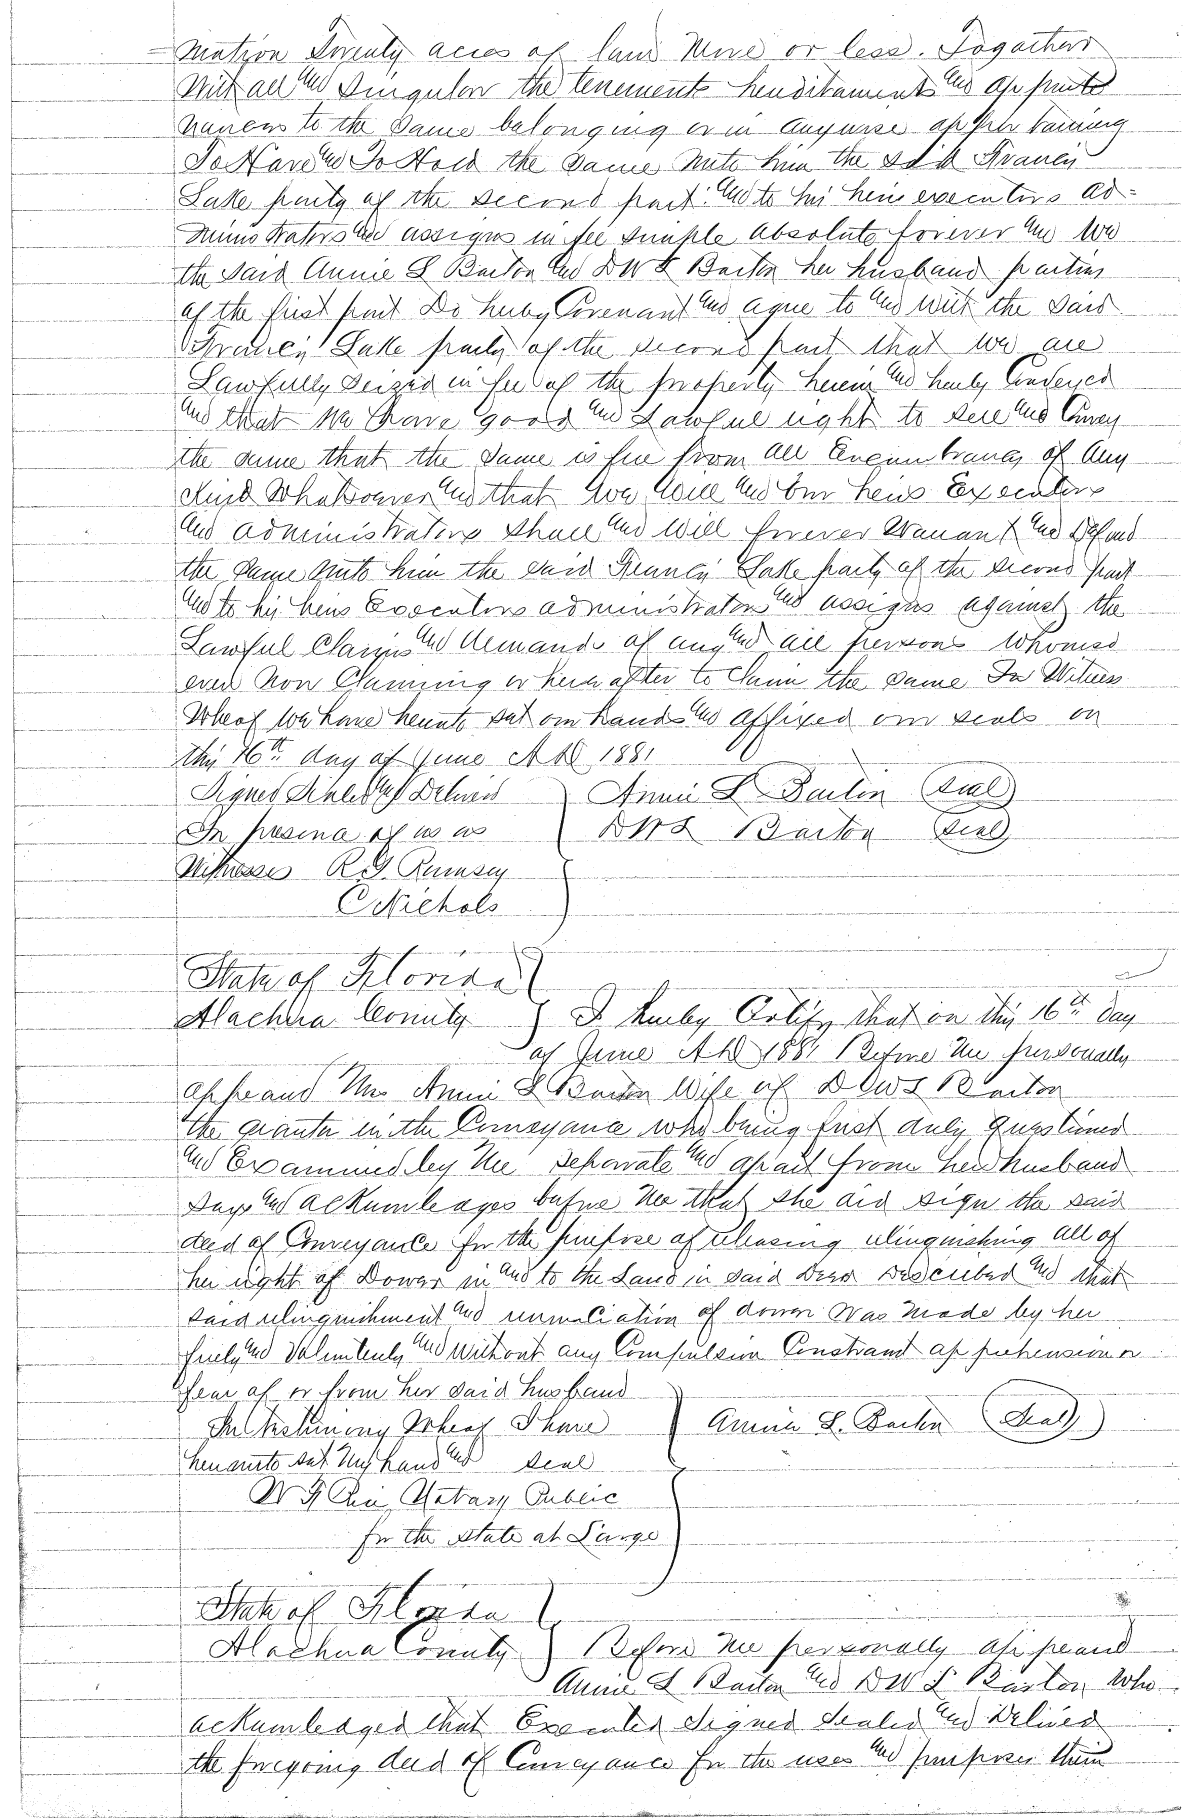 mation Twenty acres of land More or less. Togather
With all and Singular the tenements heriditaments and appurte
nances to the same belonging or in anywise appertaining
To Have and To Hold the same unto him the said Francis
Lake party of the second part. and to his heirs executors ad=
ministrators and assigns in fee simple absolute forever and we
the said Annie L Barton and DWL Barton her husband parties
of the first part Do hereby Covenant and agree to and with the said
Francis Lake party of the second part that we are
Lawfully seized in fee of the property herein and hereby Conveyed
and that we have good and Lawful right to sell and Convey
the same that the same is free from all Encumbrances of Any
Kind Whatsoever and that we will and our heirs Executors
and administrators shall and will forever Warrant and Defend
the same unto him the said Francis Lake party of the second part
and to his heirs Executors administrators and assigns against the
Lawful Claims and demands of any and all persons whomso
ever Now Claiming or hereafter to Claim the same In Witness
Wheof we have hereunto set our hands and affixed our seals on
this 16th day of June AD 1881
Signed Sealed and Delivered Annie L Barton (Seal)
In presence of us as DWL Barton (Seal)
Witnesses R.G. Rumsey
C Nichols
State of Florida
Alachua County I hereby Certify that on this 16th day
of June AD 1881 Before me personally
appeared Mrs Annie L Barton Wife of DWL Barton
the grantor in the Conveyance who being first duly questioned
and Examined by Me separate and apart from her husband
says and acknowledges before me that she did sign the said
deed of Conveyance for the purpose of releasing relinquishing all of
her right of Dower in and to the Land in said Deed Described and that
said relinquishment and renunciation of dower Was Made by her
freely and Voluntarily and without any Compulsion Constraint apprehension or
fear of or from her said husband
In testimony Wheof I have Annie L. Barton (Seal)
hereunto set My hand and seal
Notary Public
for the state at Large
State of Florida
Alachua County Before me personally appeared
Annie L Barton and DWL Barton Who
acknowledged that Executed Signed Sealed and Delivered
the foregoing deed of Conveyance for the uses and purposes therein